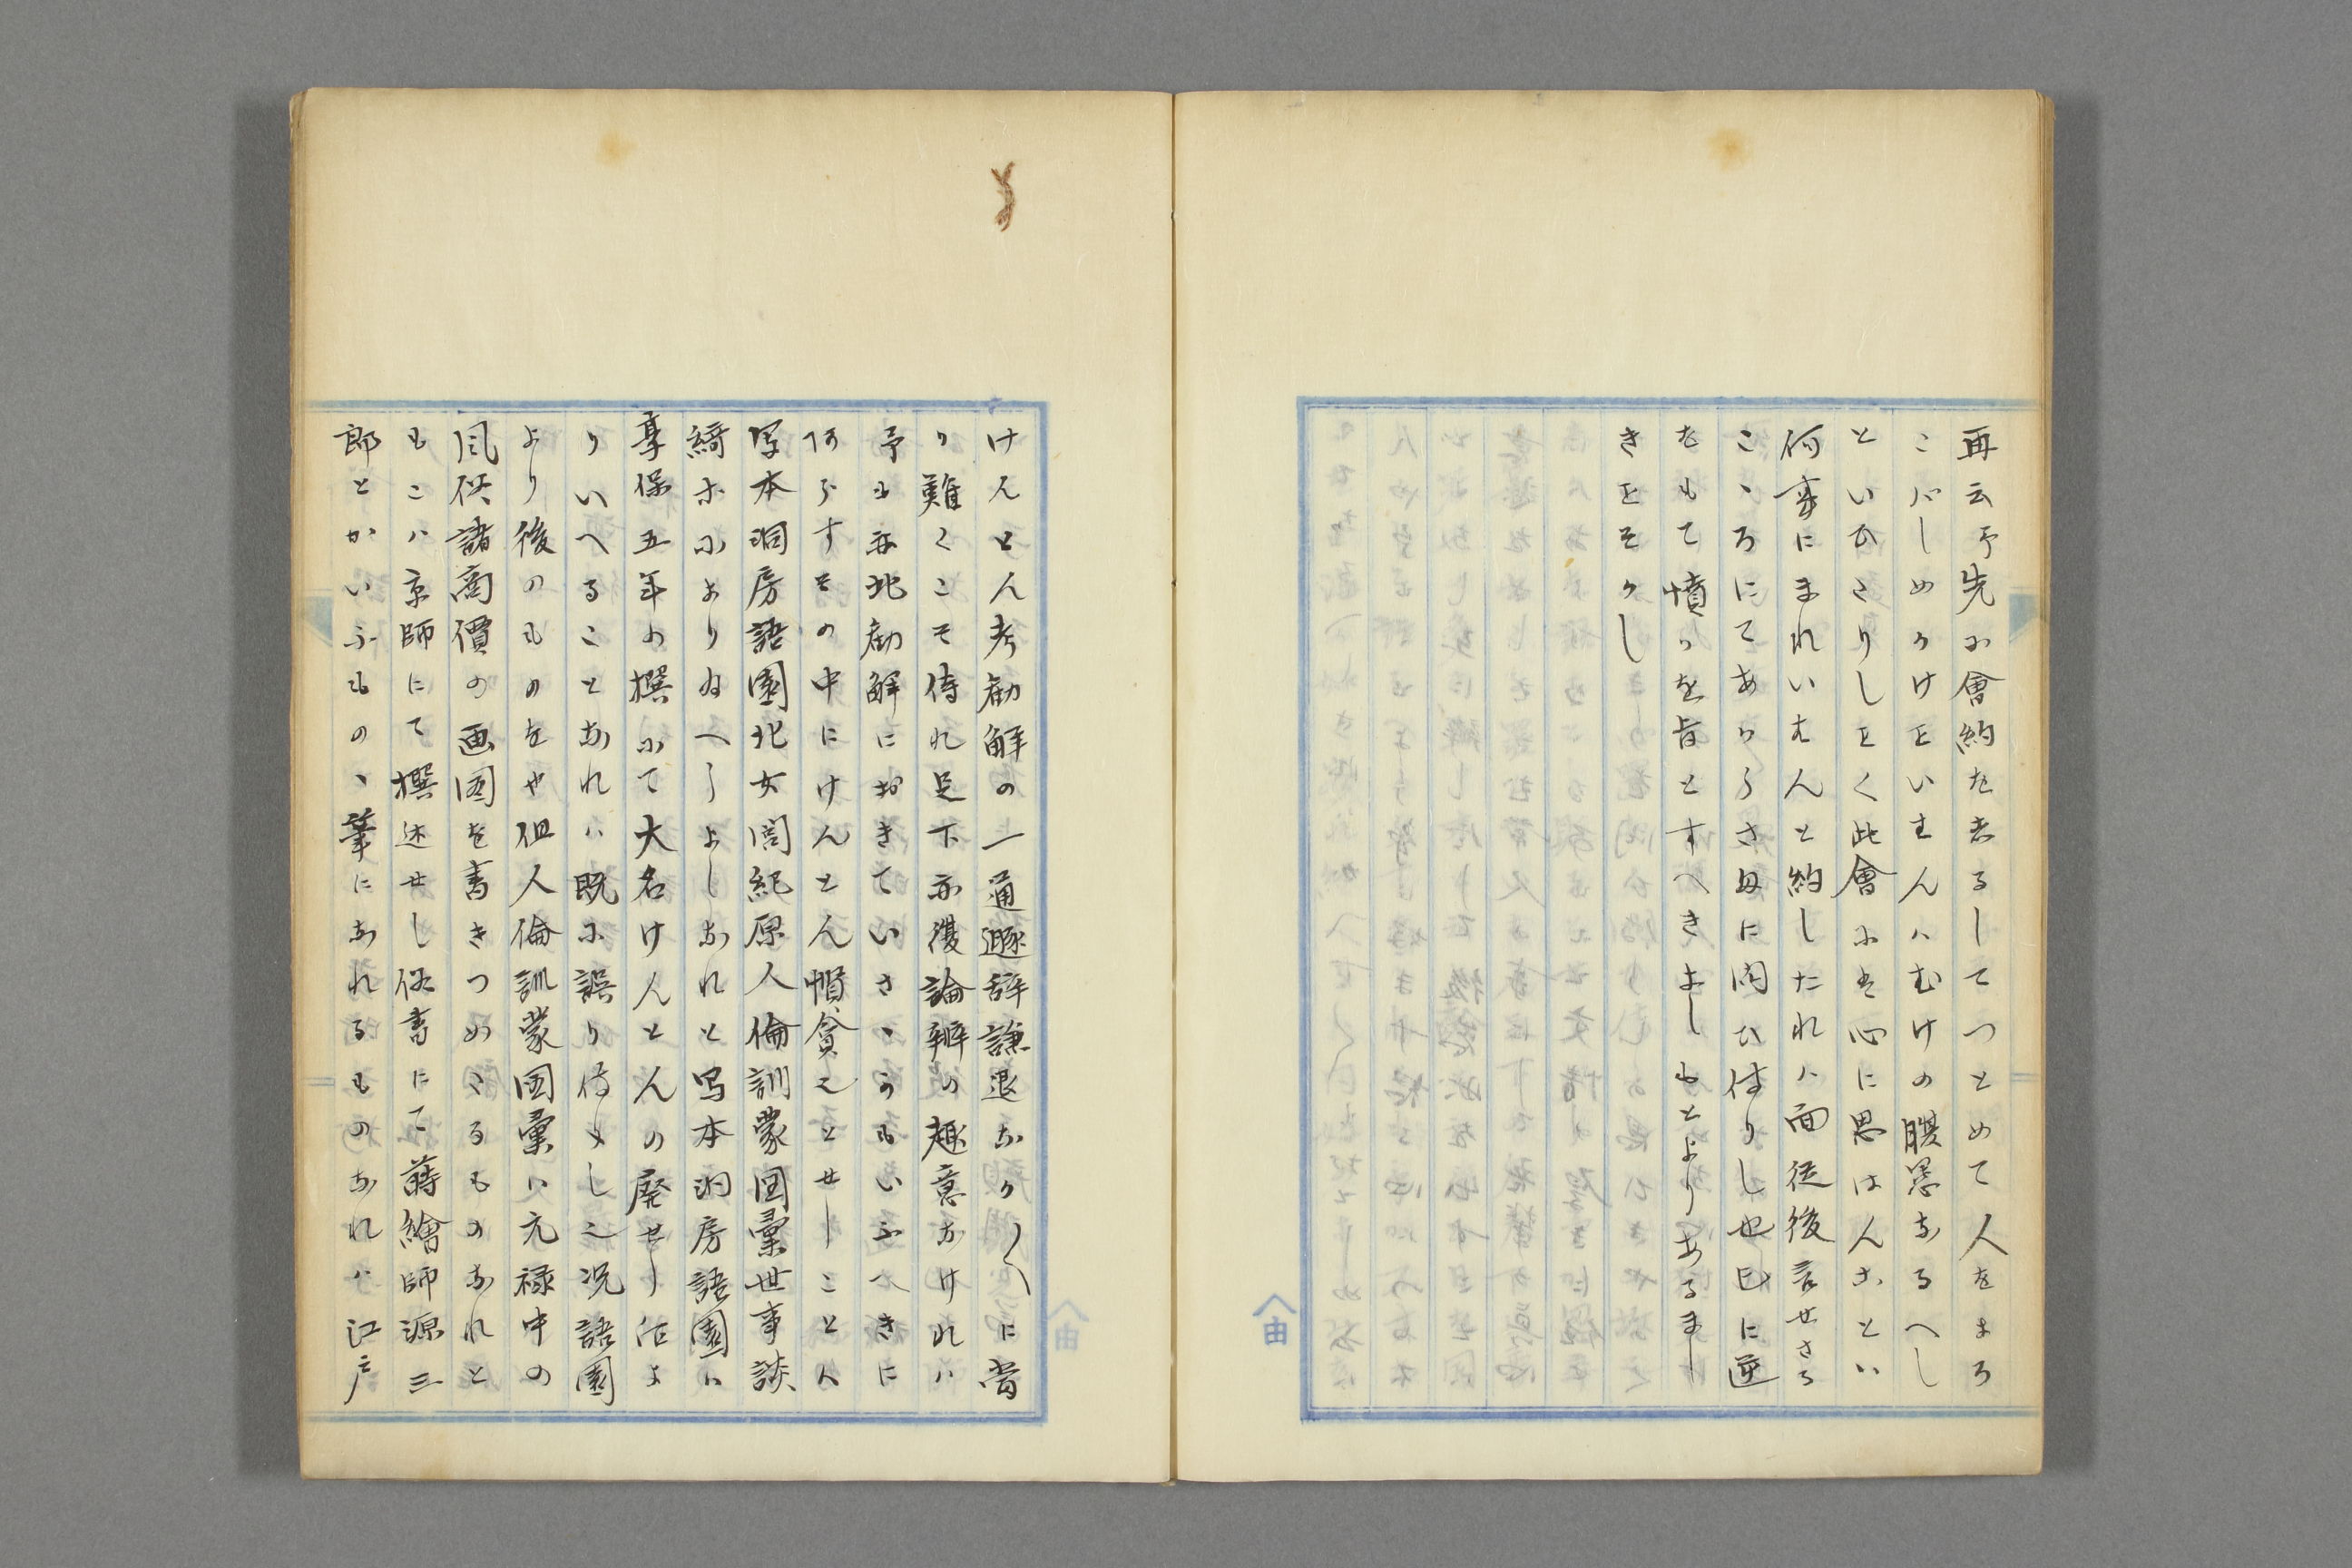 再云予先に會約をしるしてつとめて人をまろ
こバしめクけといはんハむけの腹惡なるへし
といひさりしとく此會にを心に思はんことハ
何事にまれいはんと約したれハ面従後言せさる
こゝろにてあからさまに問ひ侍りし也已に逆
をもて憤りを旨とすへきよしもとよりあるまし
きことそかし
けんとん考勧解の一通遜辞謙退なか〱に当
り難くこそ侍れ足下亦復論辨の趣意なけれハ
予も亦此勧解におきていさゝかもいふへきに
何らすその中にけんとん慣貪之とせしことハ
写本洞房語園北女閭紀原人倫訓蒙図彙世事談
綺等によりゐへるよしなれと写本洞房語園ハ
享保五年の撰にて大名けんとんの廃せし后よ
りいへることなれハ既に誤り侍めし之况語園
より後のものをや但人倫訓蒙図彙ハ元禄中の
風俗諸商價の画図を書きつめたるものなれと
もこハ京師にて撰述せし俗書にて蒔繪師源三
郎とかいふものゝ筆になれるものなれハ江戸